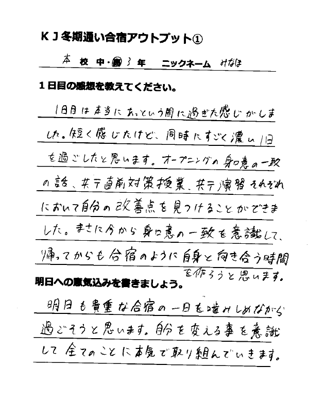 KJ冬期通い合宿アウトプット①
本 校 中・高 3 年 ニックネーム みなほ
1日目の感想を教えてください。
1日目は本当にあっという間に過ぎた感じがしま
した。短く感じたけど、同時にすごく濃い1日
を過ごしたと思います。オープニングの身口意の一致
の話、共テ直前対策授業、共テ演習それぞれ
において自分の改善点を見つけることができま
した。まさに今から身口意の一致を意識して、
帰ってからも合宿のように自身と向き合う時間
を作ろうと思います。
明日への意気込みを書きましょう。
明日も貴重な合宿の一日を噛みしめながら
過ごそうと思います。自分を変える事を意識
して全てのことに本気で取り組んでいきます。